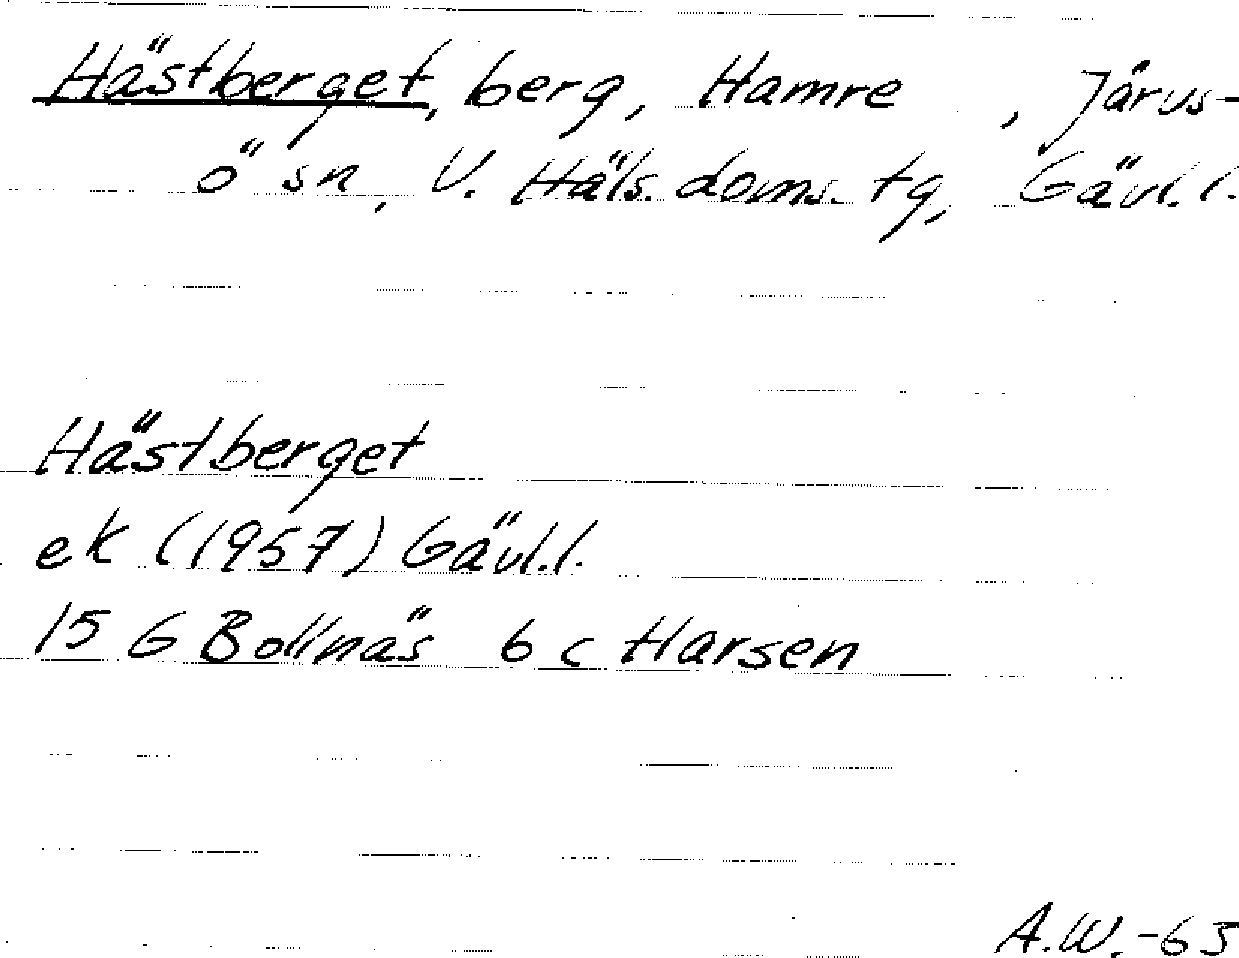 Hästberget, berg, Hamre , Järvs-
ö sn, V. Häls. doms. tg, Gävl.l.
Hästberget
ek (1957) Gävl.l.
15 G Bollnäs 6 c Harsen
A.W.-63